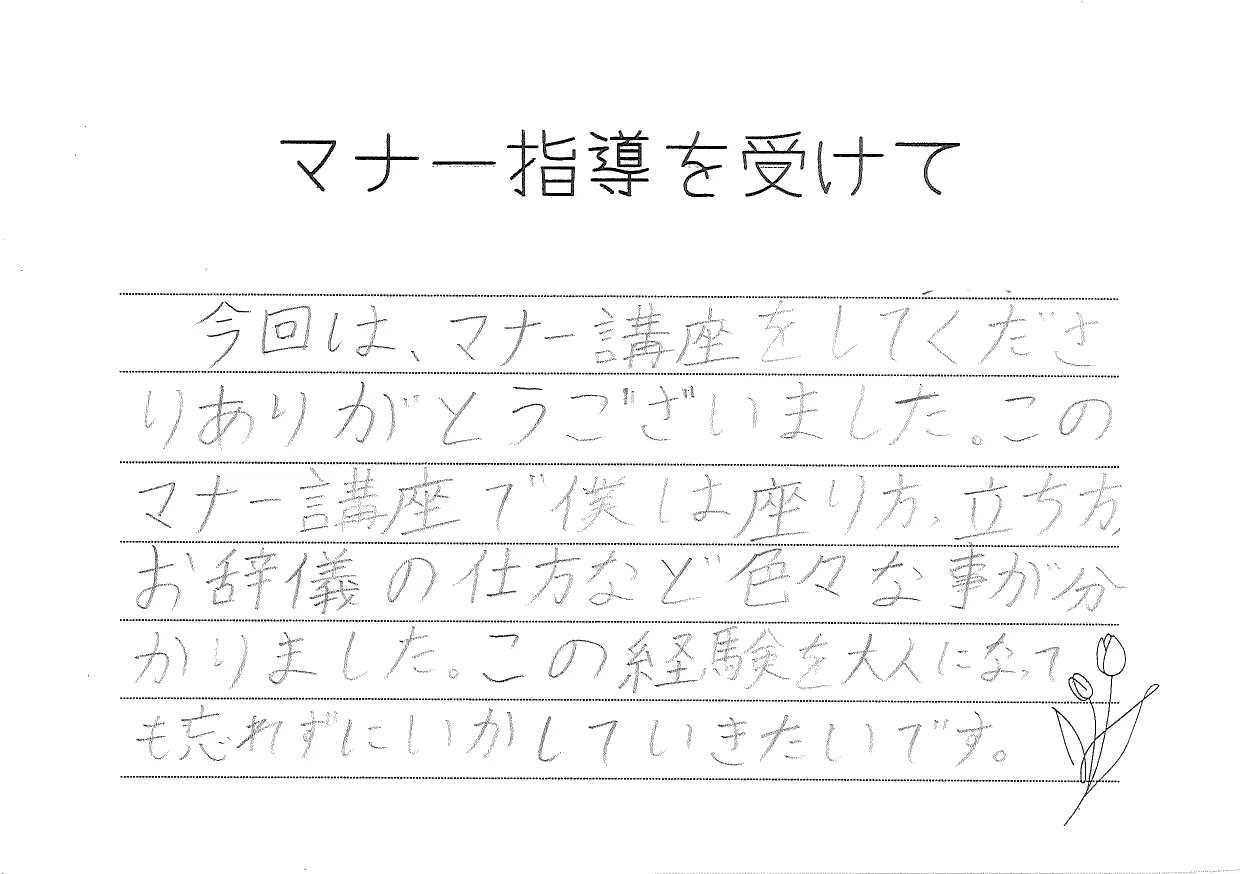 マナー指導を受けて
今回は、マナー講座をしてくださ
りありがとうございました。この
マナー講座で僕は座り方、立ち方、
お辞儀の仕方など色々な事が分
かりました。この経験を大人になって
も忘れずにいかしていきたいです。